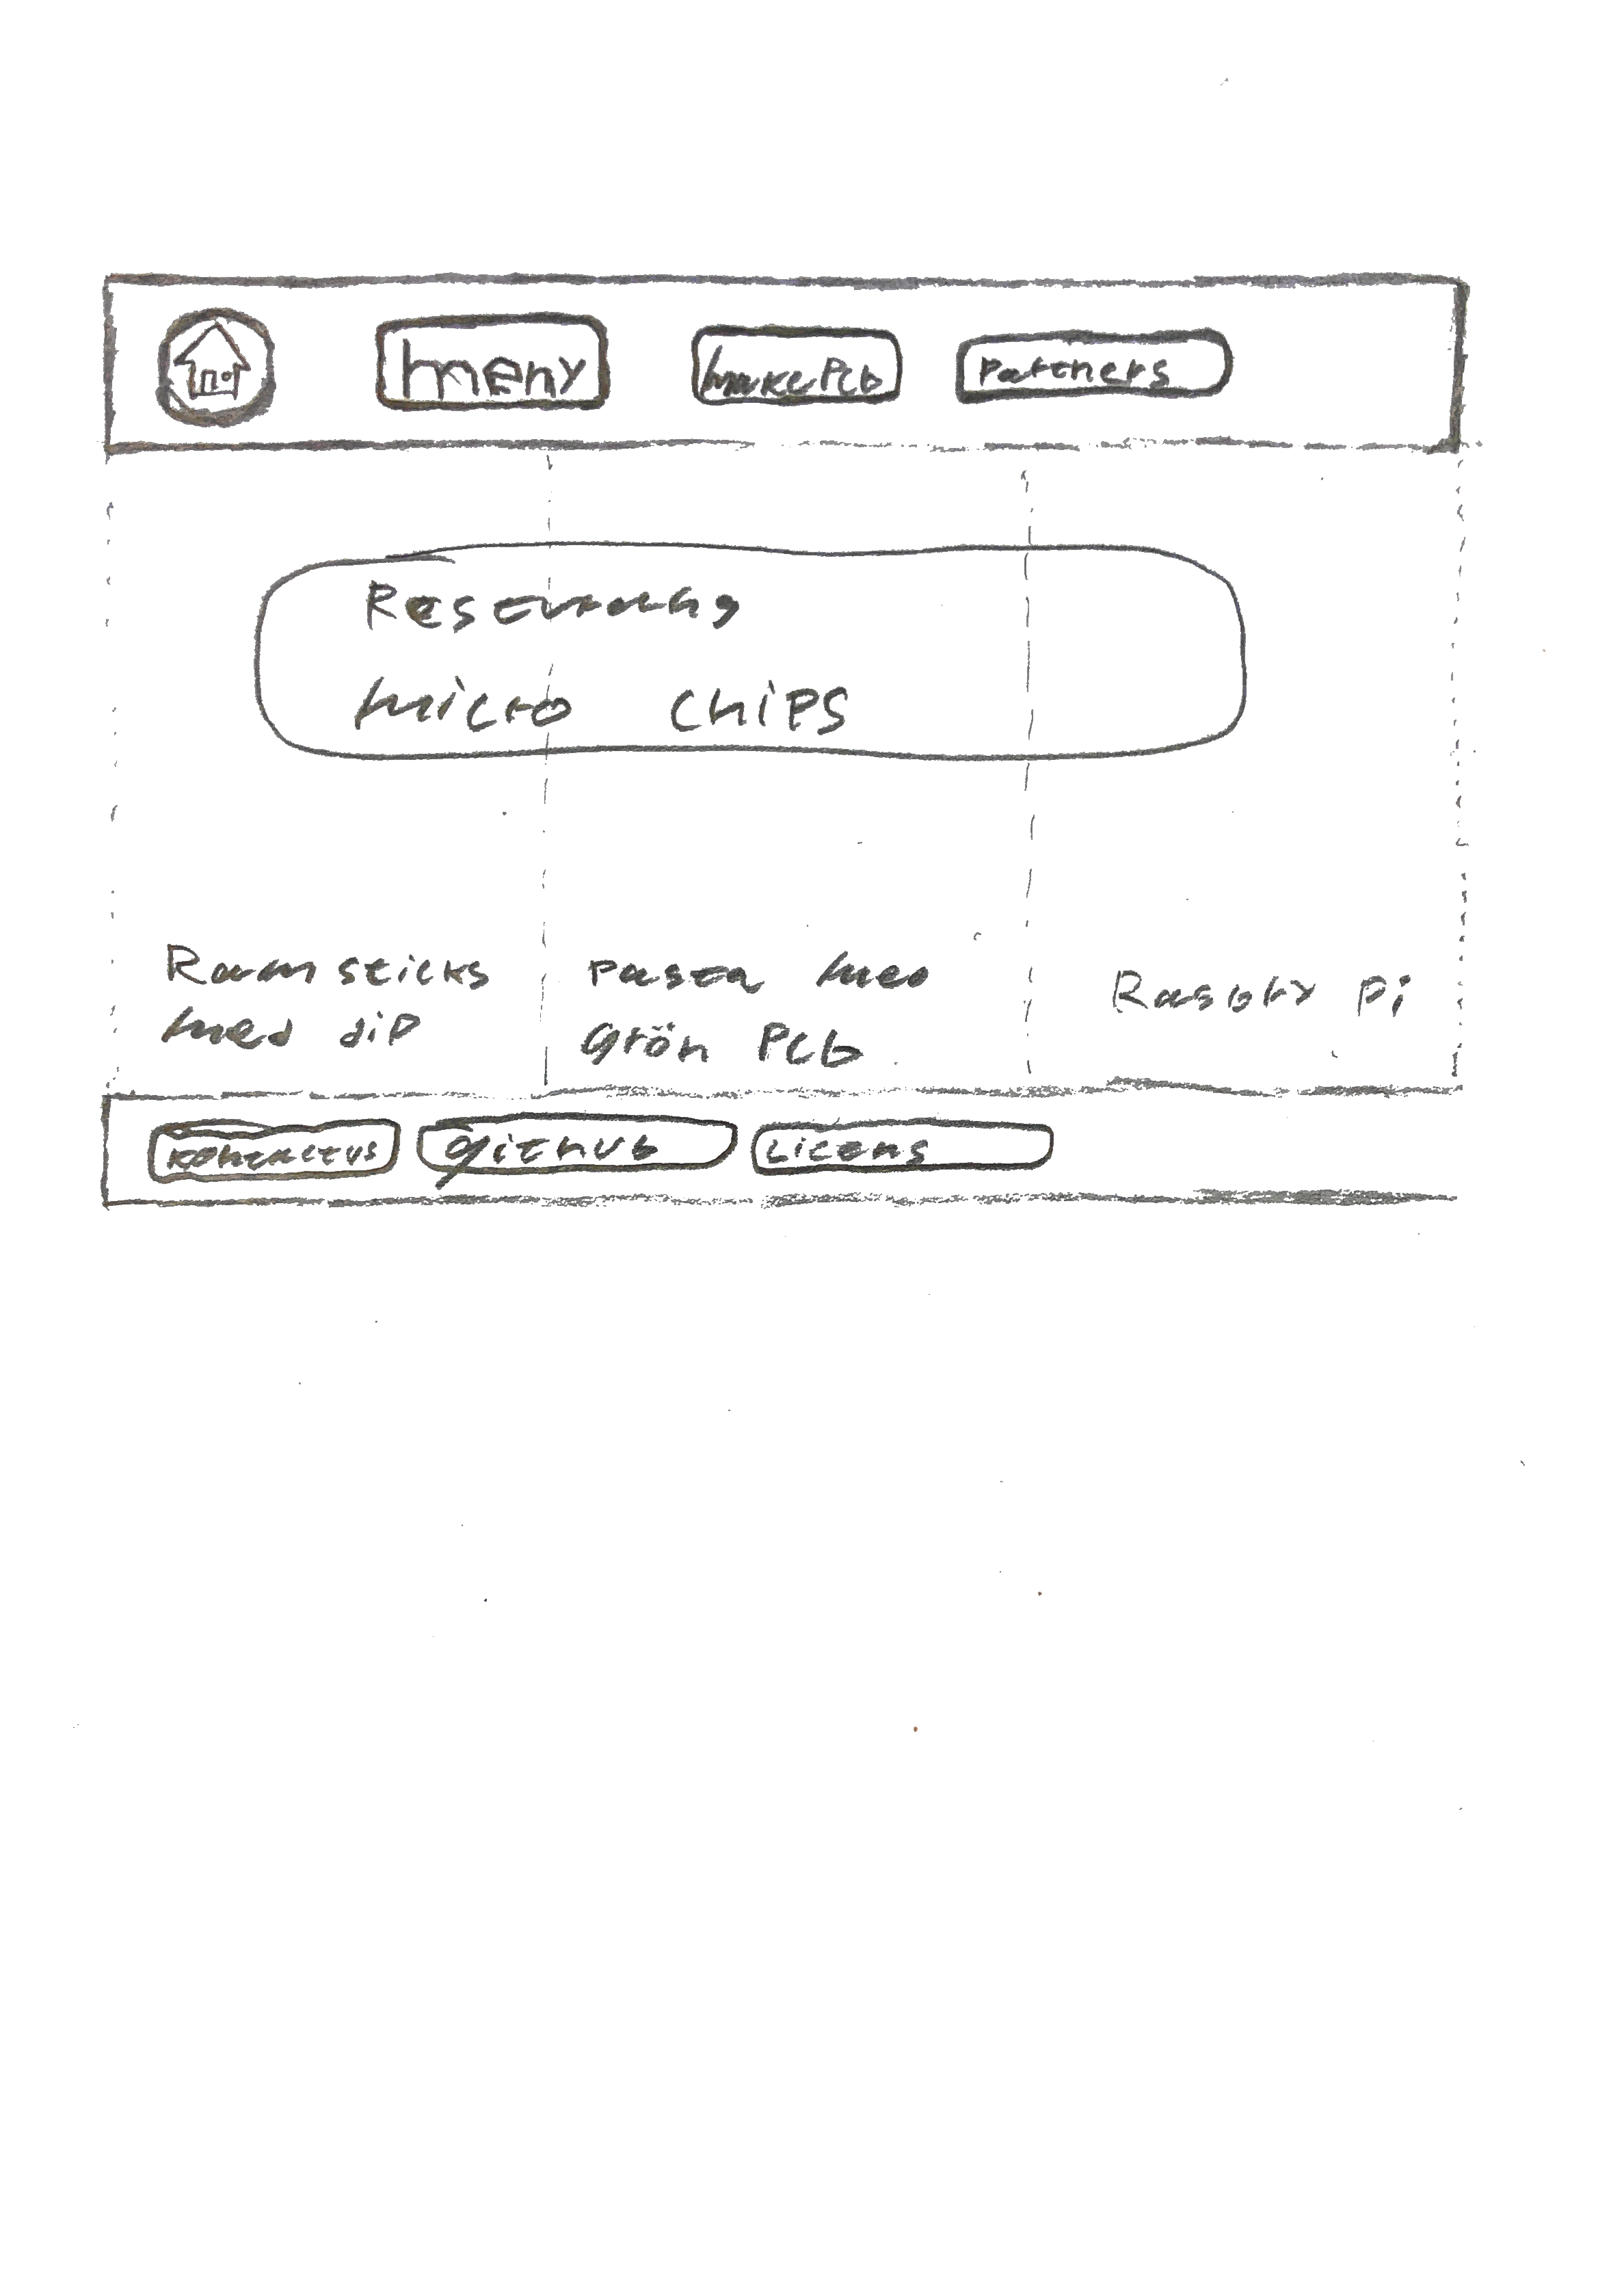 meny
makePcb
Partners
Restaurang
micro chips
Ramsticks
med dip
Pasta med
Grön Pcb
Rasbry Pi
kontactus
github
Licens